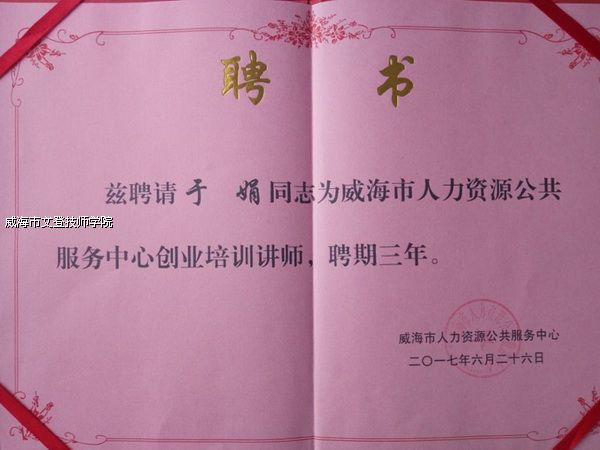 聘 书
兹聘请于 娟同志为威海市人力资源公共
威海市文登技师学院
服务中心创业培训讲师，聘期三年。
威海市人力资源公共服务中心
二〇一七年六月二十六日